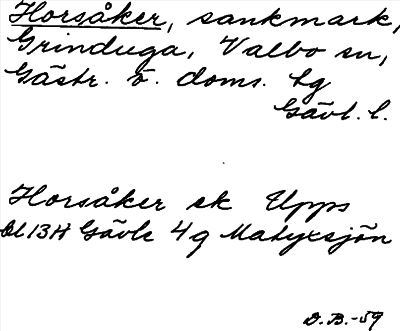 Horsåker, sankmark,
Grinduga, Valbo sn,
Gästr. ö. doms. tg
Gävl. l.
Horsåker sk Upps
bl 13H Gävle 4g Matyxsjön
D.B.-59